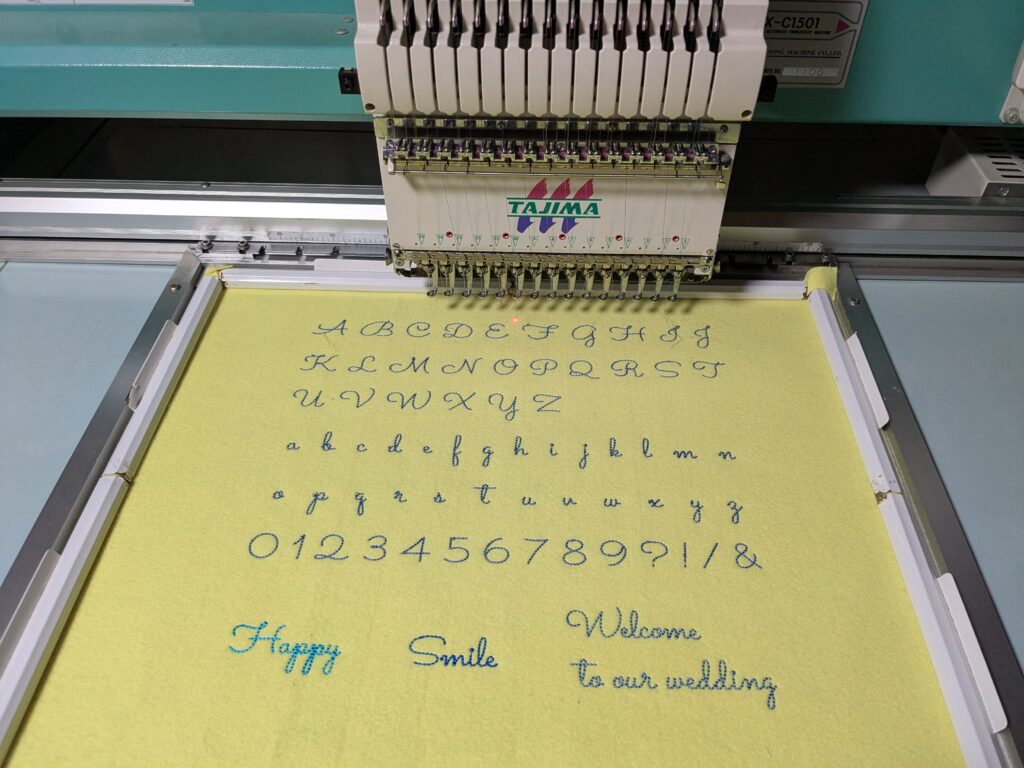 X-C1501
ELECTRONIC EMBROIDERY MACHINE
SEWING MACHINE CO.,LTD.
1106
TAJIMA
A B C D E F G H I J
K L M N O P Q R S T
U V W X Y Z
a b c d e f g h i j k l m n
o p q r s t u v w x y z
0 1 2 3 4 5 6 7 8 9 ? ! / &
Happy
Smile
Welcome
to our wedding